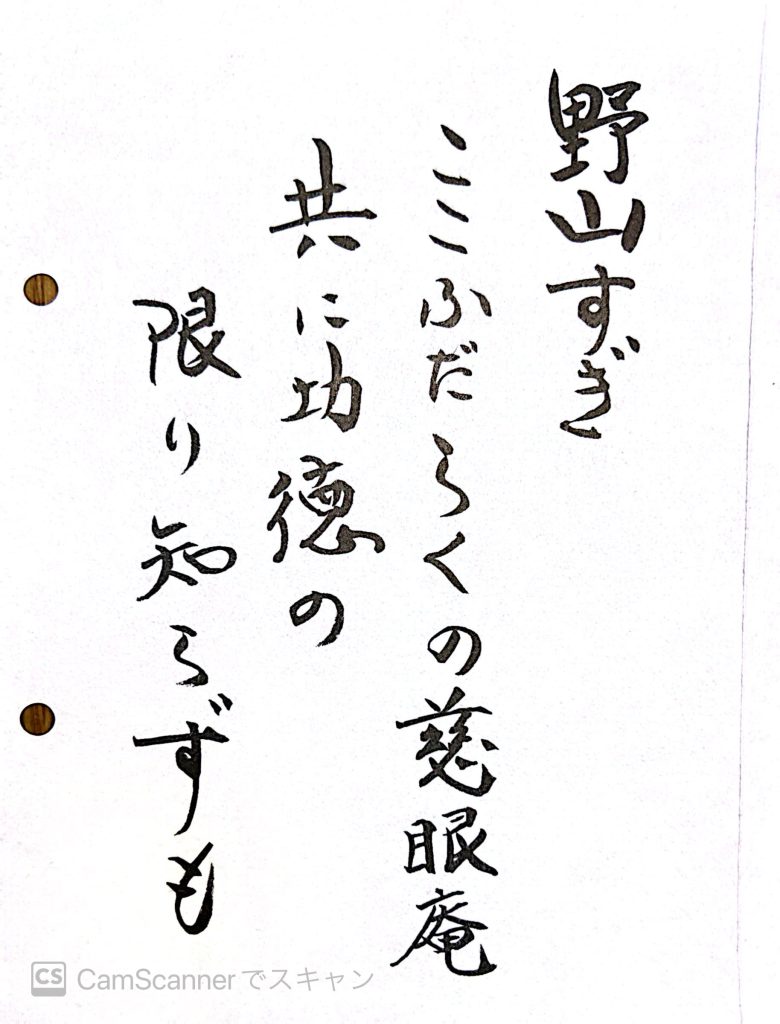 野山すぎ
ここふだらくの慈眼庵
共に功徳の
限り知らずも
CS CamScannerでスキャン